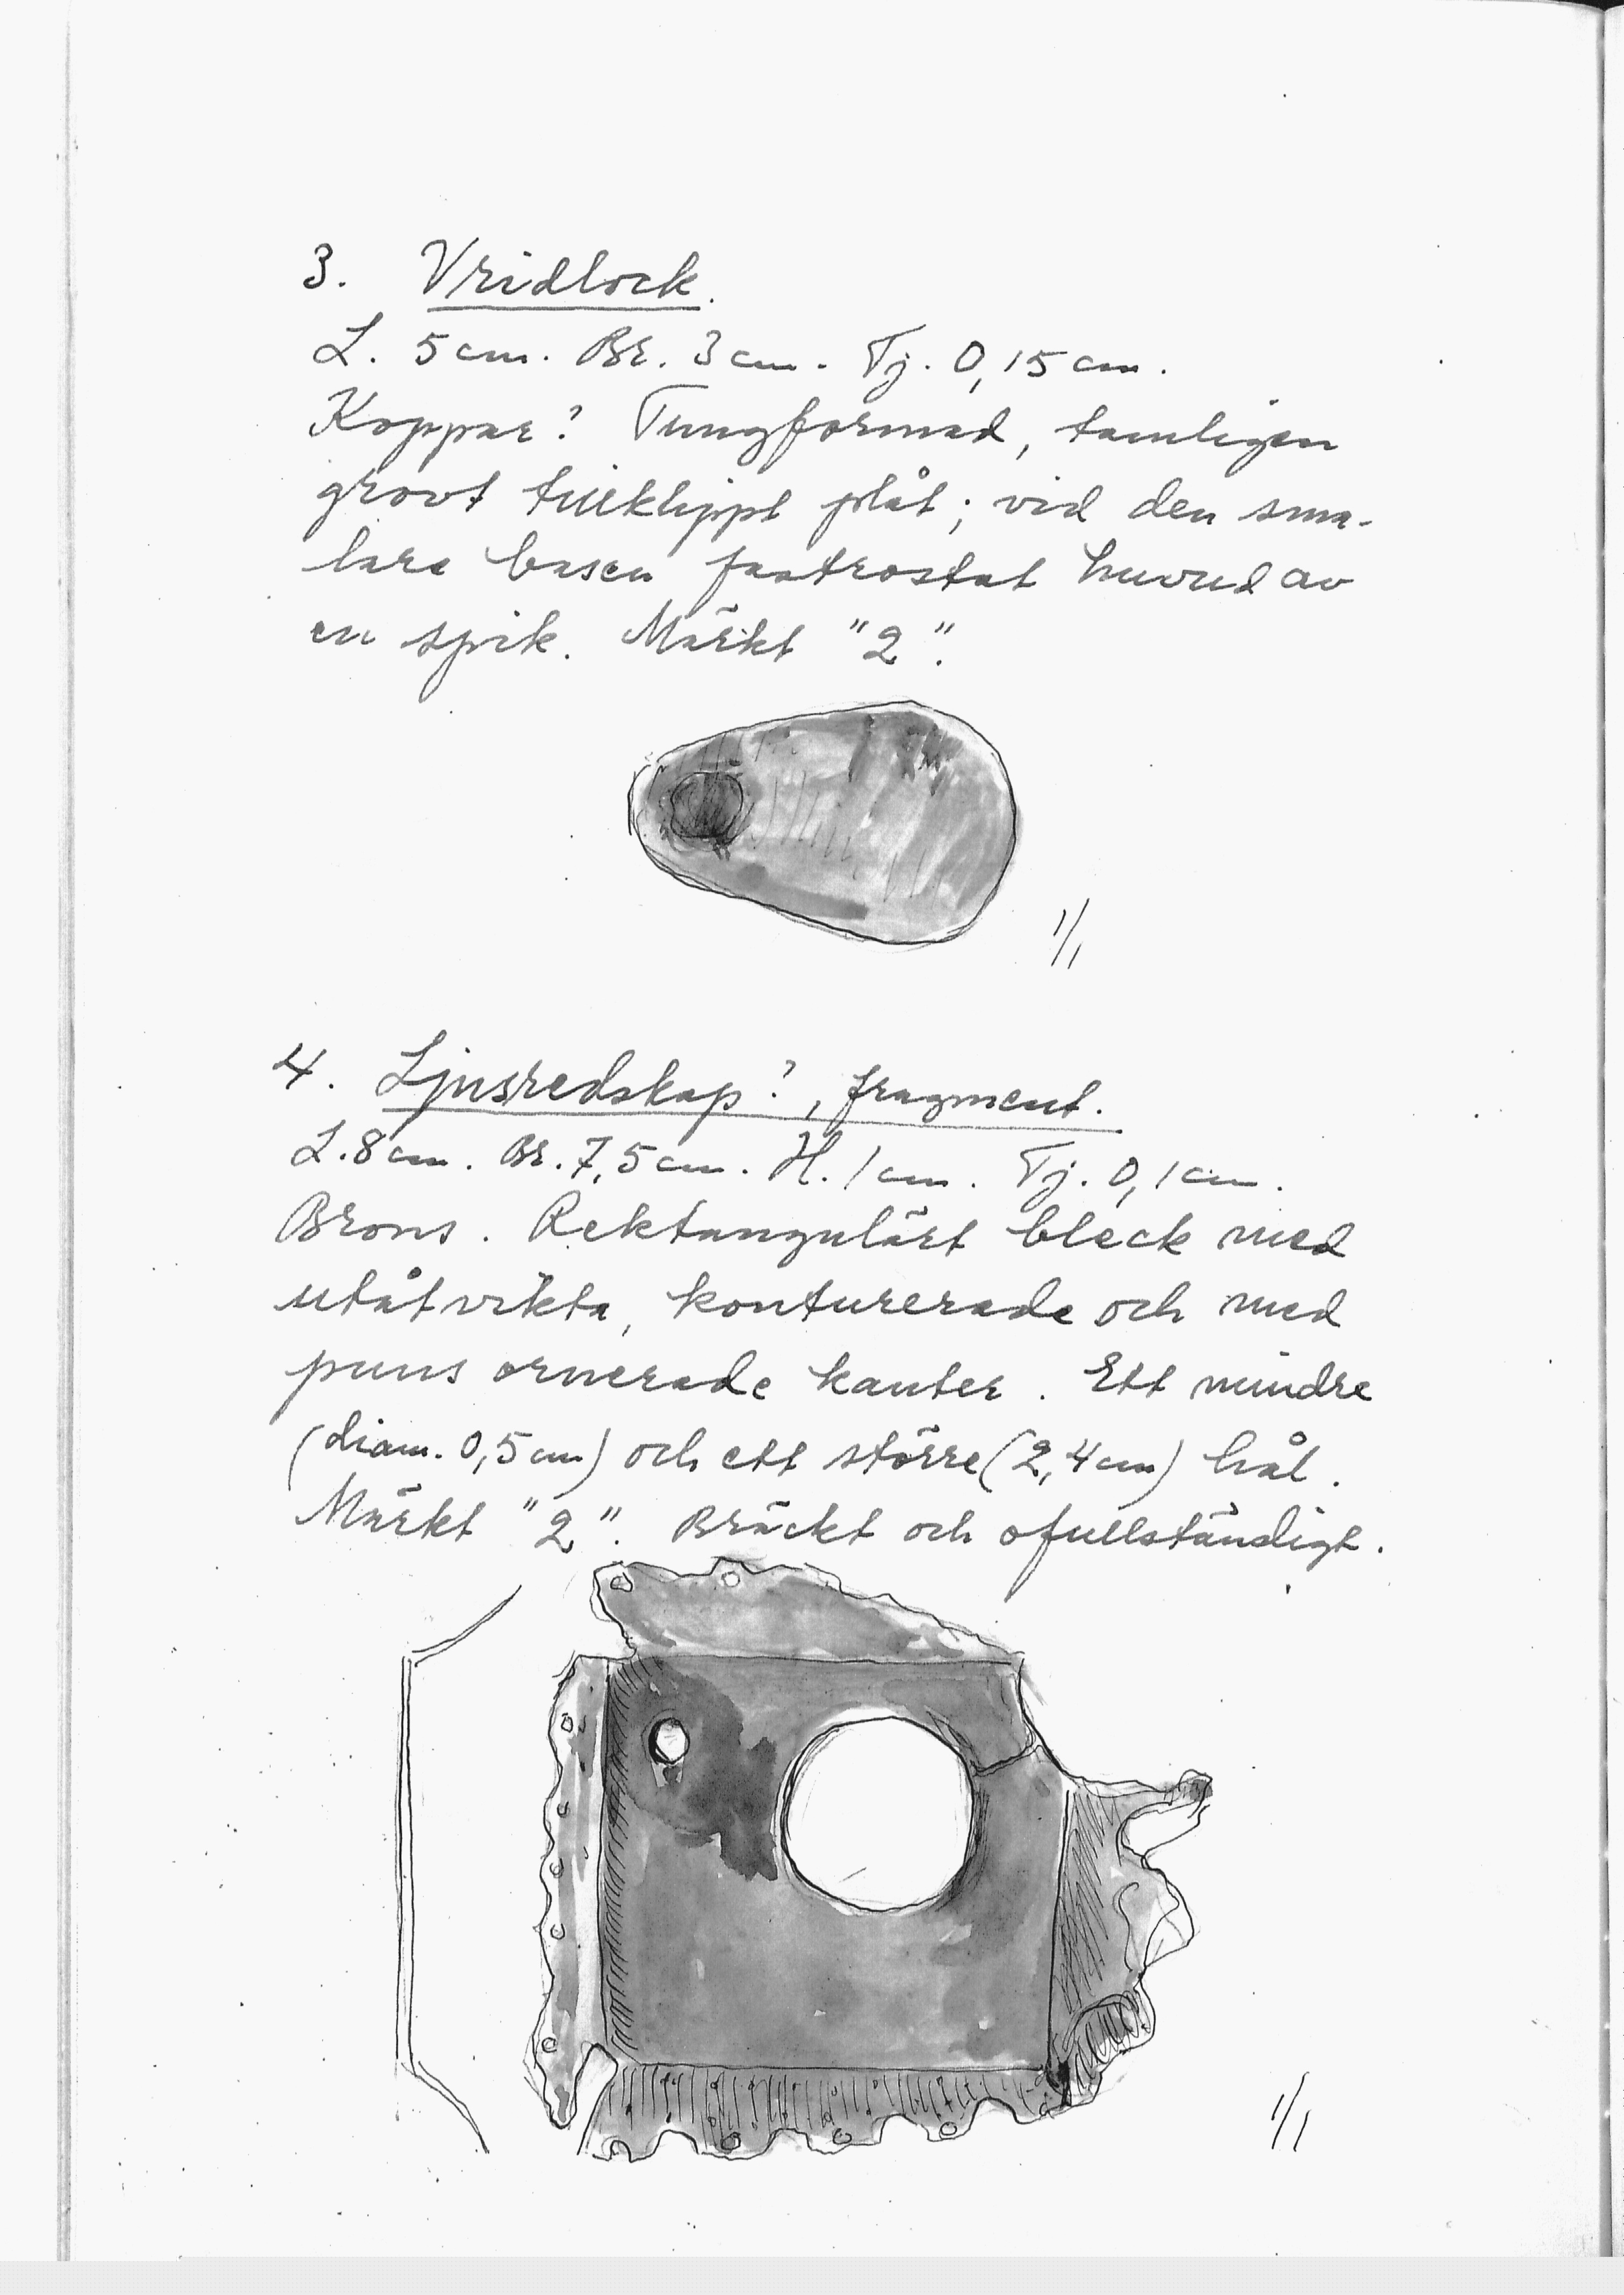 3. Vridlock.
L. 5 cm. Br. 3 cm. Tj. 0,15 cm.
Koppar? Tungformad, tämligen
grovt tillklippt plåt; vid den sma-
lare basen fastrostat huvud av
en spik. Märkt "2".
1/1
4. Ljusredskap?, fragment.
L. 8 cm. Br. 7,5 cm. H. 1 cm. Tj. 0,1 cm.
Brons. Rektangulärt bleck med
utåtvikta, konturerade och med
puns ornerade kanter. Ett mindre
(diam. 0,5 cm) och ett större (2,4 cm) hål.
Märkt "2". Bräckt och ofullständigt.
1/1